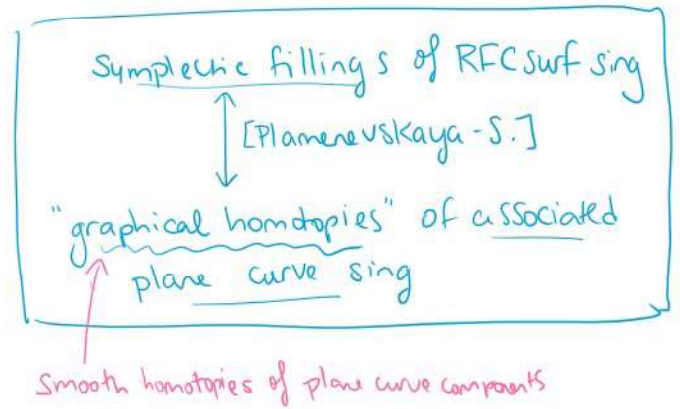 Symplectic fillings of RFC surf sing
[Plamenevskaya-S.]
"graphical homotopies" of associated
plane curve sing
Smooth homotopies of plane curve components